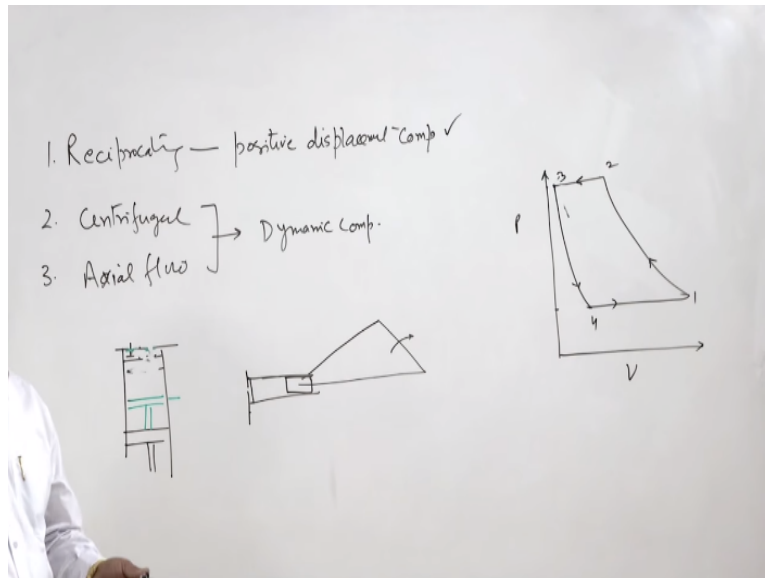 1. Reciprocating — positive displacement comp ✓
2. Centrifugal
3. Axial flow
→ Dynamic comp.
P
3
2
1
4
V